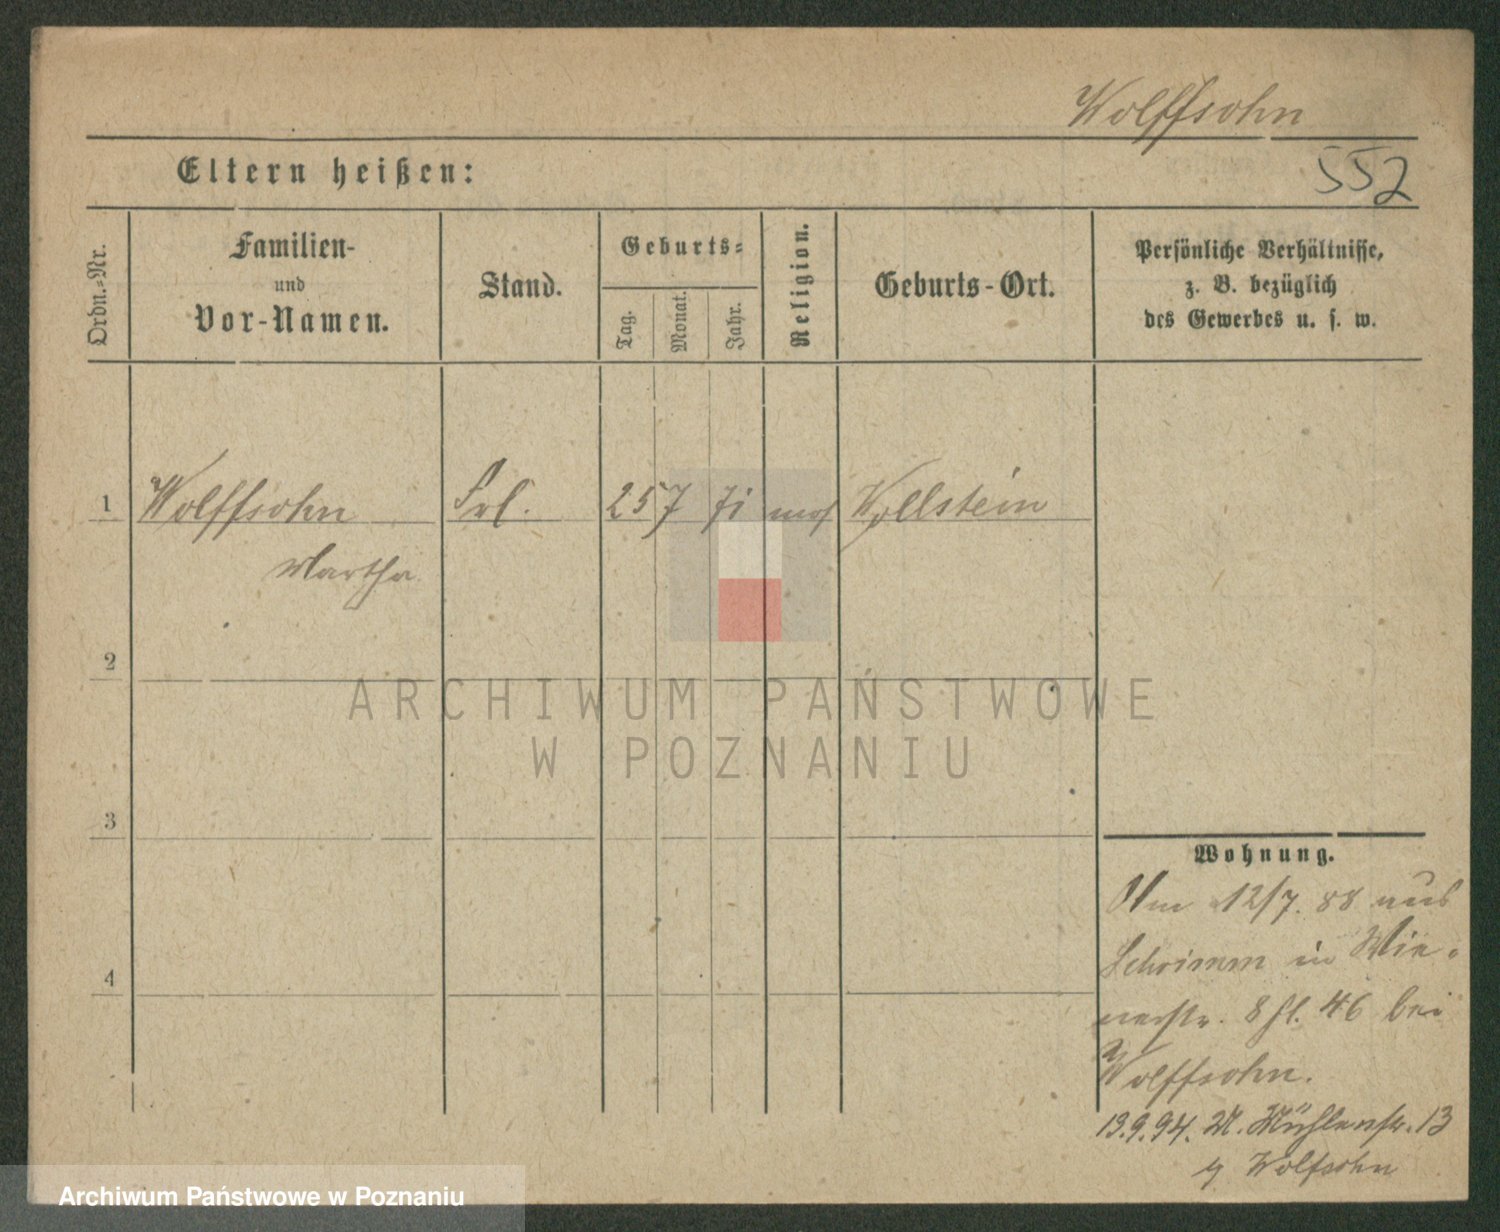 Wolffsohn
552
Eltern heißen:
Ordn.-Nr.
Familien-
und
Vor-Namen.
Stand.
Geburts-
Tag.
Monat.
Jahr.
Religion.
Geburts-Ort.
Persönliche Verhältnisse,
z. B. bezüglich
des Gewerbes u. s. w.
1 Wolffsohn Frl. 25 7 71 mos Wollstein
Martha
2
3
4
Wohnung.
Am 12/7. 88 aus
Schrimm in Wie-
nerstr. 8 fl. 46 bei
Wolffsohn.
13.9.94. Mühlenstr. 13
Wolfsohn
ARCHIWUM PAŃSTWOWE
W POZNANIU
Archiwum Państwowe w Poznaniu